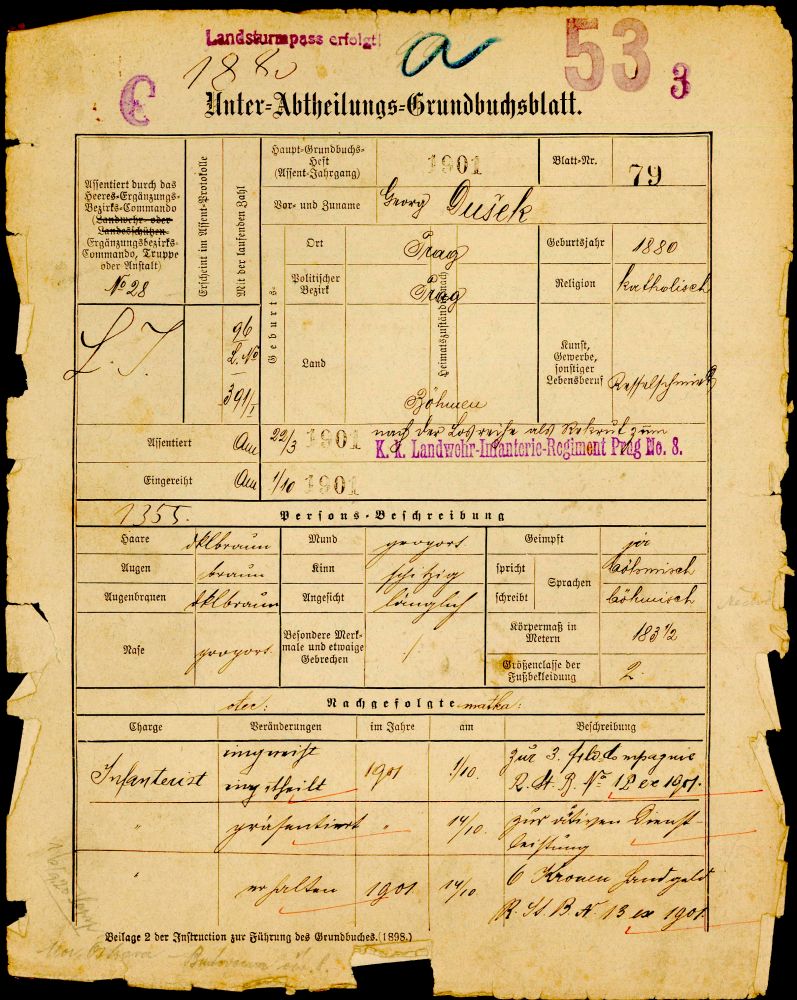 Landsturmpass erfolgt!
a
53
3
1880
C
Unter-Abtheilungs-Grundbuchsblatt.
Assentiert durch das
Heeres-Ergänzungs-
Bezirks-Commando
(Landwehr- oder
Landesschützen-
Ergänzungsbezirks-
Commando, Truppe
oder Anstalt)
No 28
Erscheint im Assent-Protokolle
Mit der laufenden Zahl
L. J.
96
L. No
391/1
Haupt-Grundbuchs-
Heft
(Assent-Jahrgang)
1901
Blatt-Nr.
79
Vor- und Zuname
Georg Dušek
Geburts-
Ort
Prag
Politischer
Bezirk
Prag
Land
Böhmen
Heimatszuständigkeit
Geburtsjahr
1880
Religion
katholisch
Kunst,
Gewerbe,
sonstiger
Lebensberuf
Kesselschmied
Assentiert
Am
22/3
1901
nach der Losreihe als Rekrut zum
K. k. Landwehr-Infanterie-Regiment Prag No. 8.
Eingereiht
Am
1/10
1901
1355.
Persons-Beschreibung
Haare
dklbraun
Mund
proport
Geimpft
ja
Augen
braun
Kinn
spitzig
spricht
Sprachen
böhmisch
Augenbrauen
dklbraun
Angesicht
länglich
schreibt
böhmisch
Nase
proport
Besondere Merk-
male und etwaige
Gebrechen
/
Körpermaß in
Metern
183 1/2
Größenclasse der
Fußbekleidung
2.
otec:
Nachgefolgte
matka:
Charge
Veränderungen
im Jahre
am
Beschreibung
Infanterist
eingereiht
eingetheilt
1901
1/10.
zur 3. Feldcompagnie
1901.
"
präsentiert
"
14/10.
zur aktiven Dienst-
leistung
"
erhalten
1901
14/10.
6 Kronen Handgeld
13 ex 1901.
Beilage 2 der Instruction zur Führung des Grundbuches. (1898.)